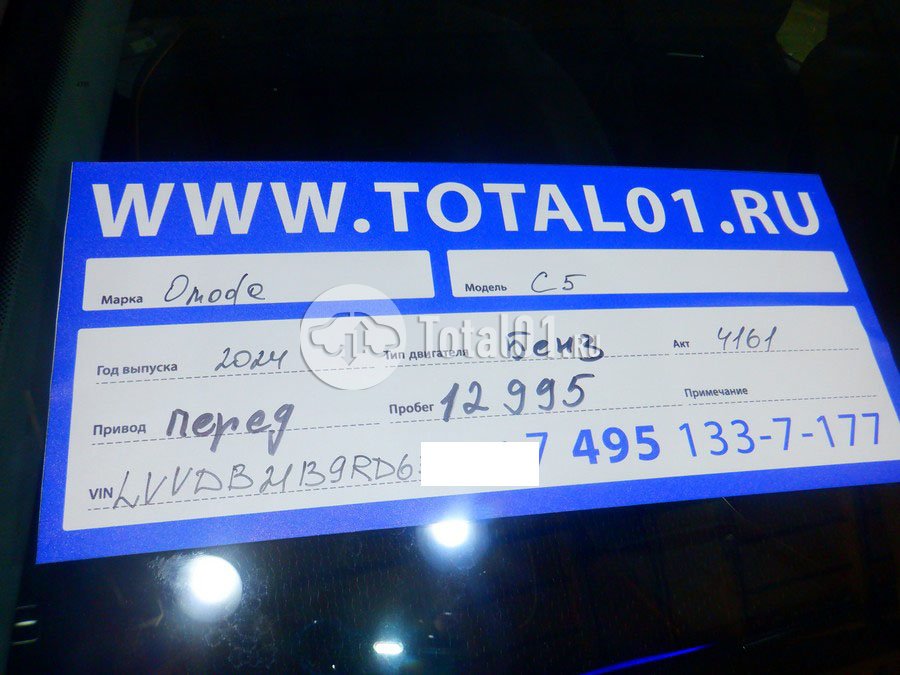 WWW.TOTAL01.RU
Марка Omoda Модель C5
Total01.ru
Год выпуска 2024 Тип двигателя бенз Акт 4161
Привод перед Пробег 12 995 Примечание
7 495 133-7-177
VIN LVVDB21B9RD6